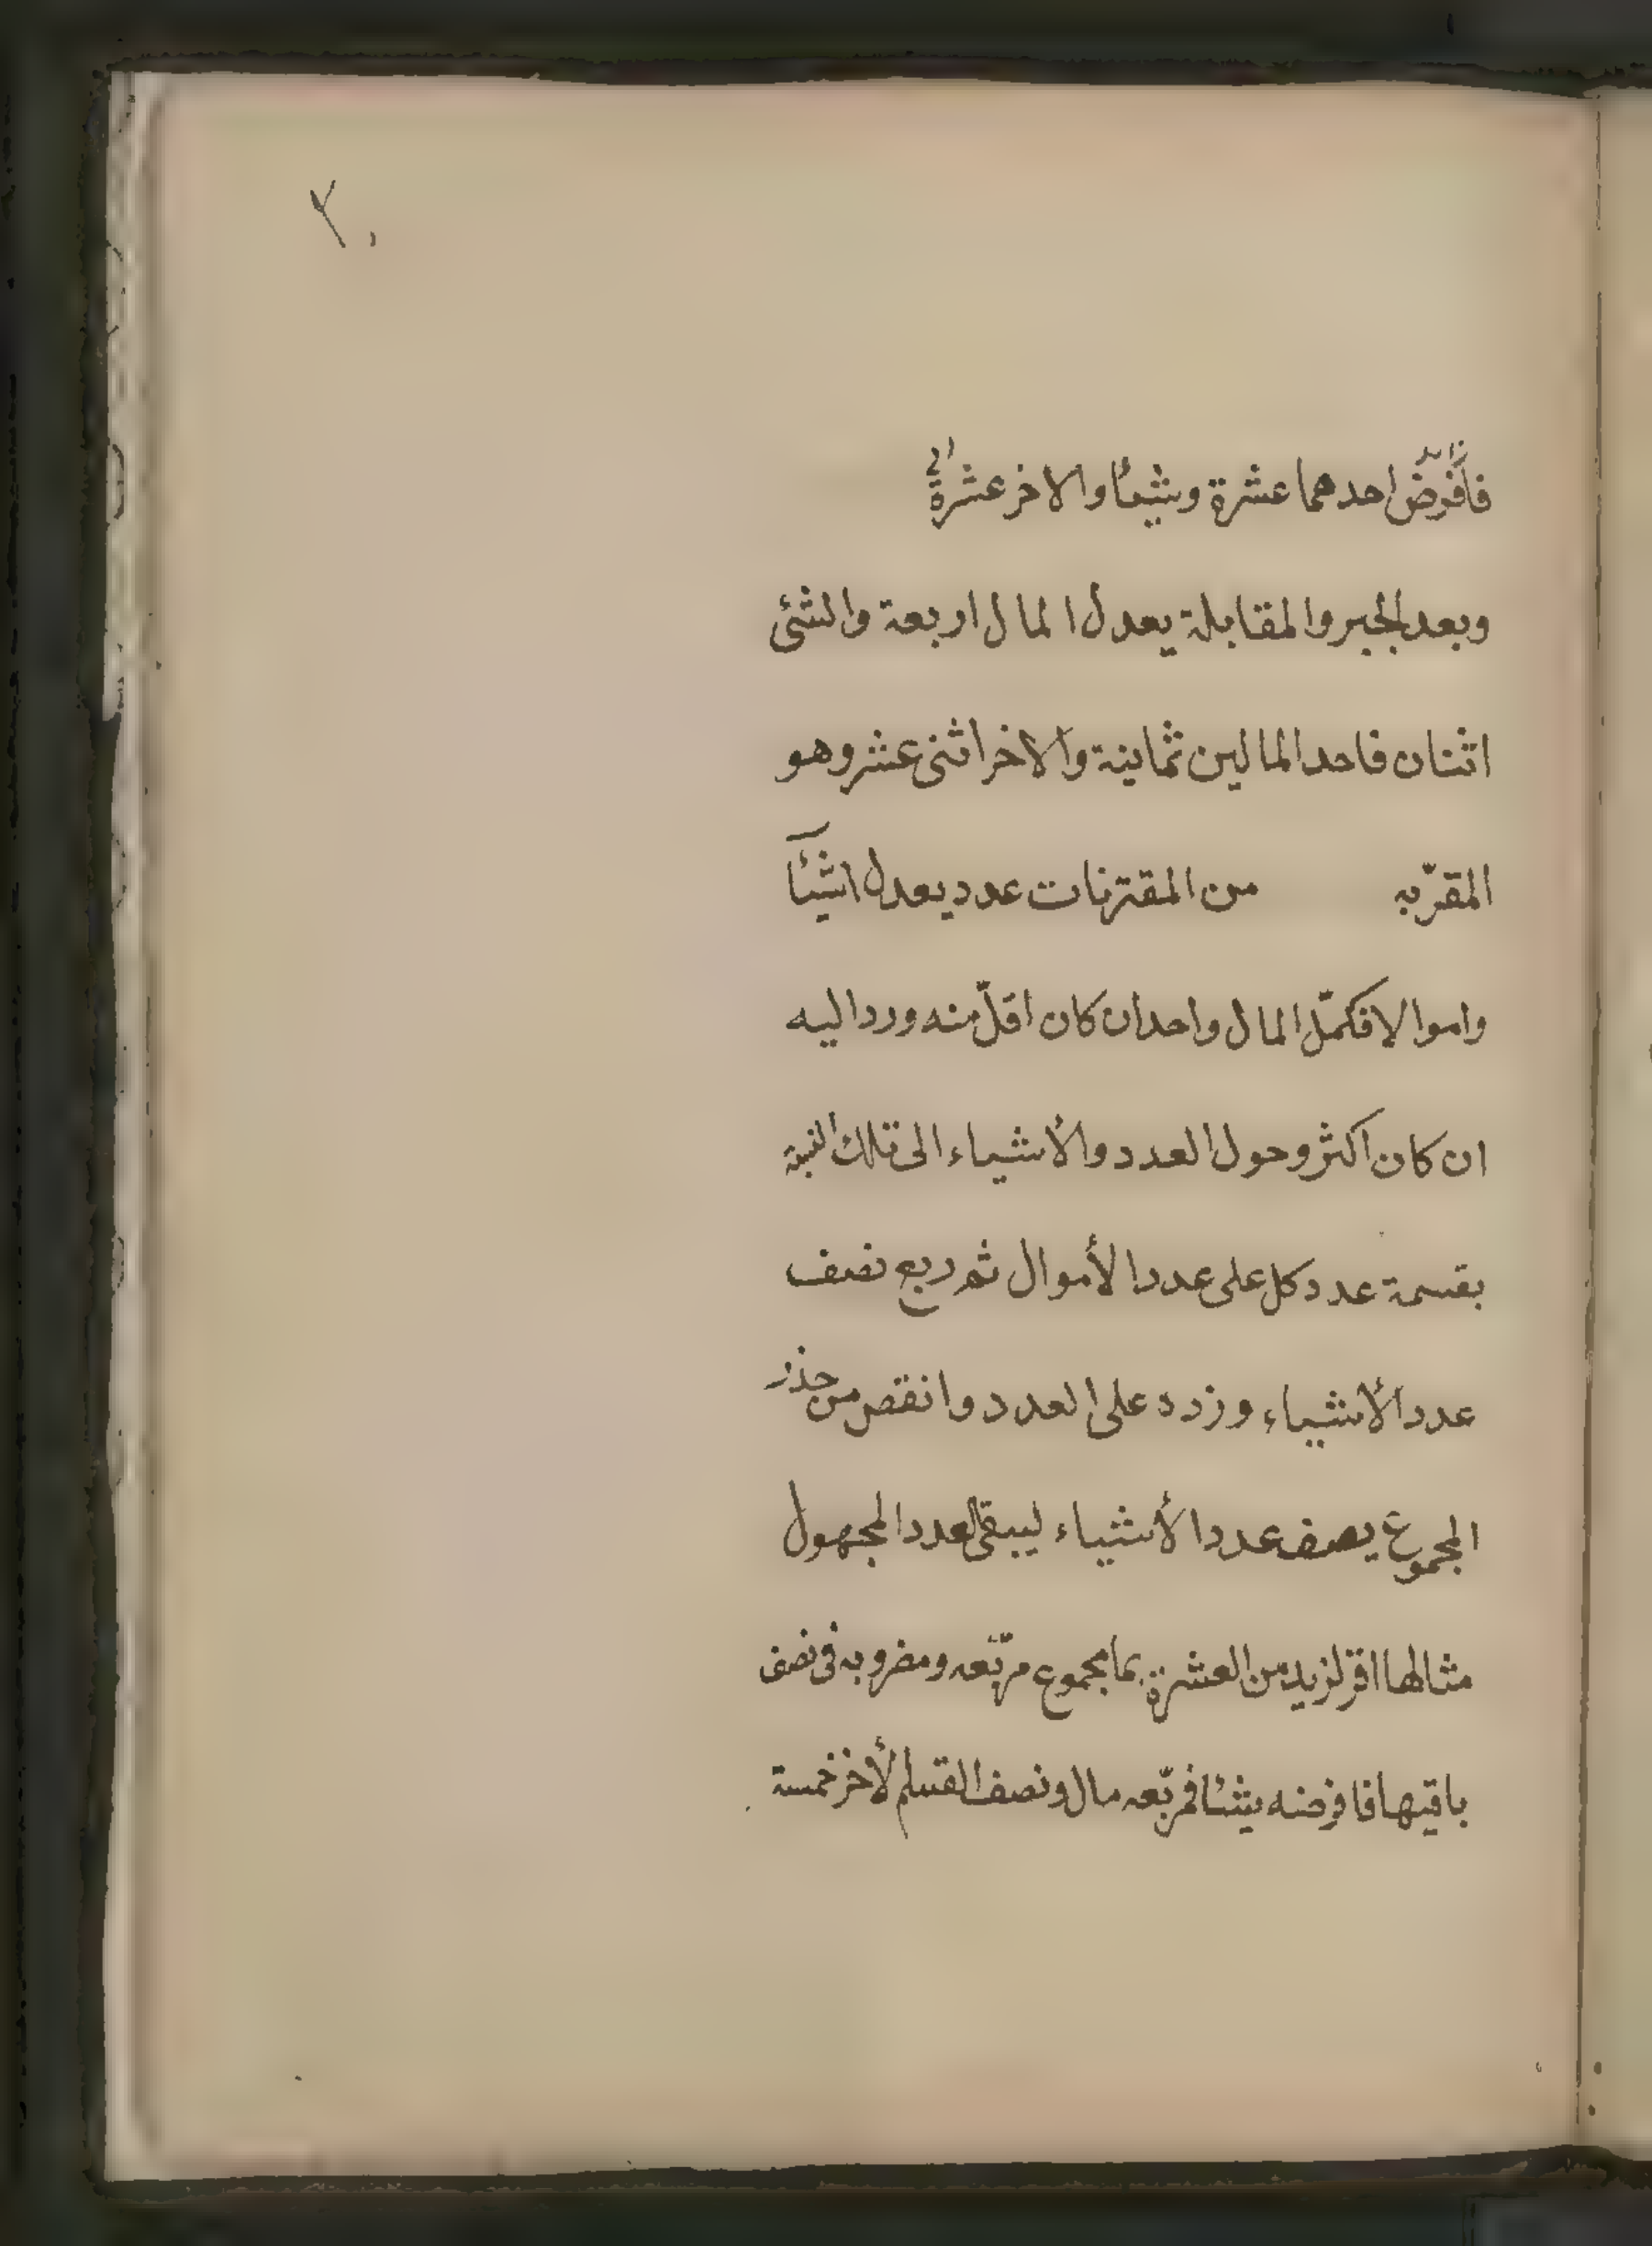 ٢٠
فافرض احدهما عشرة وشيئا والاخر عشرة
وبعد الجبر والمقابلة يعدل المال اربعة والشئ
اثنان فاحد المالين ثمانية والاخر اثنى عشر وهو
المقرّ به من المقترنات عدد يعدل اشيئآ
واموالا فكمّل المال واحدا ان كان اقلّ منه ورد اليه
ان كان اكثر وحول العدد والأشياء الى تلك النسبة
بقسمة عدد كل على عدد الأموال ثم ربع نصف
عدد الأشياء وزده على العدد وانقص من جذر
المجموع يصف عدد الأشياء ليبقى العدد المجهول
مثالها اقر لزيد من العشرة بما مجموع مربّعه ومضروبه فى نصف
باقيها فافرضه شيئا فمربّعه مال ونصف القسم الأخر خمسة